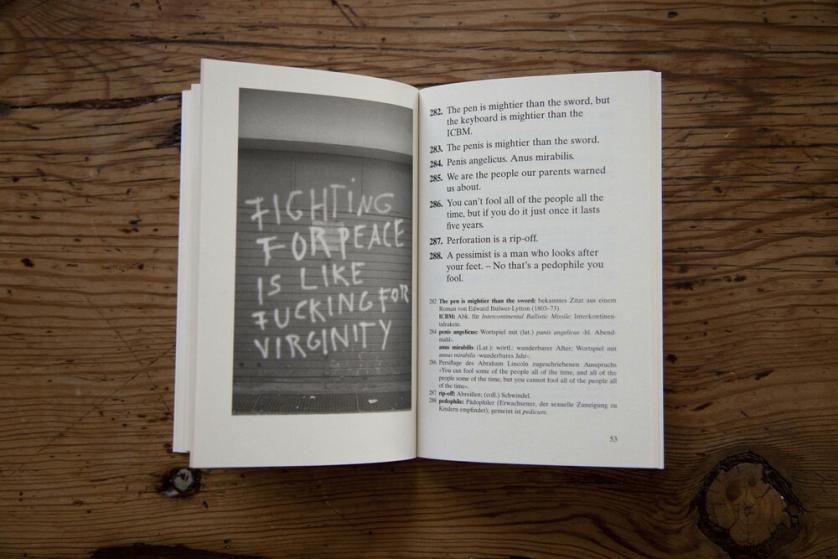 FIGHTING
FOR PEACE
IS LIKE
FUCKING FOR
VIRGINITY
282. The pen is mightier than the sword, but
the keyboard is mightier than the
ICBM.
283. The penis mightier than the sword.
284. Penis angelicus. Anus mirabilis.
285. We are the people our parents warned
us about.
286. You can't fool all of the people all the
time, but if you do it just once it lasts
five years.
287. Perforation is a rip-off.
288. A pessimist is a man who looks after
your feet. – No that's a pedophile you
fool.
282 The pen is mightier than the sword: bekanntes Zitat aus einem
Roman von Edward Bulwer-Lytton (1803–73).
ICBM: Abk. für Intercontinental Ballistic Missile: Interkontinen-
talrakete.
284 penis angelicus: Wortspiel mit (lat.) panis angelicus ›hl. Abend-
mahl‹.
anus mirabilis (Lat.): wörtl.: wunderbarer After; Wortspiel mit
annus mirabilis ›wunderbares Jahr‹.
286 Persiflage des Abraham Lincoln zugeschriebenen Ausspruchs
»You can fool some of the people all of the time, and all of the
people some of the time, but you cannot fool all of the people all
of the time«.
287 rip-off: Abreißen; (coll.) Schwindel.
288 pedophile: Pädophiler (Erwachsener, der sexuelle Zuneigung zu
Kindern empfindet); gemeint ist pedicure.
53